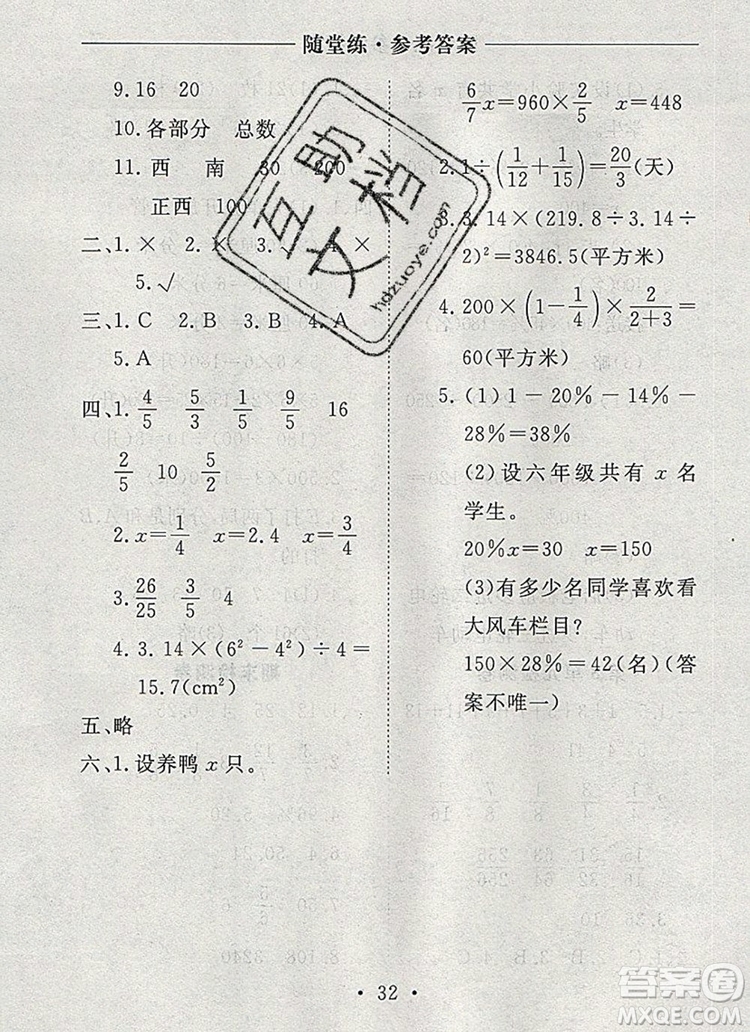 随堂练·参考答案
9.16 20
10.各部分 总数
11.西 南 30 200
正西 100
二、1.× 2.× 3.√ 4.×
5.√
三、1.C 2.B 3.B 4.A
5.A
四、1. 4/5 5/3 1/5 9/5 16
2/5 10 5/2
2.x=1/4 x=2.4 x=3/4
3. 26/25 3/5 4
4.3.14×(6²-4²)÷4=
15.7(cm²)
五、略
六、1.设养鸭 x 只。
6/7 x=960×2/5 x=448
2.1÷(1/12+1/15)=20/3(天)
3.3.14×(219.8÷3.14÷
2)²=3846.5(平方米)
4.200×(1-1/4)×2/(2+3)=
60(平方米)
5.(1)1-20%-14%-
28%=38%
(2)设六年级共有 x 名
学生。
20%x=30 x=150
(3)有多少名同学喜欢看
大风车栏目?
150×28%=42(名)(答
案不唯一)
·32·
互助文档
hdzuoye.com
答案圈
MXQE.COM